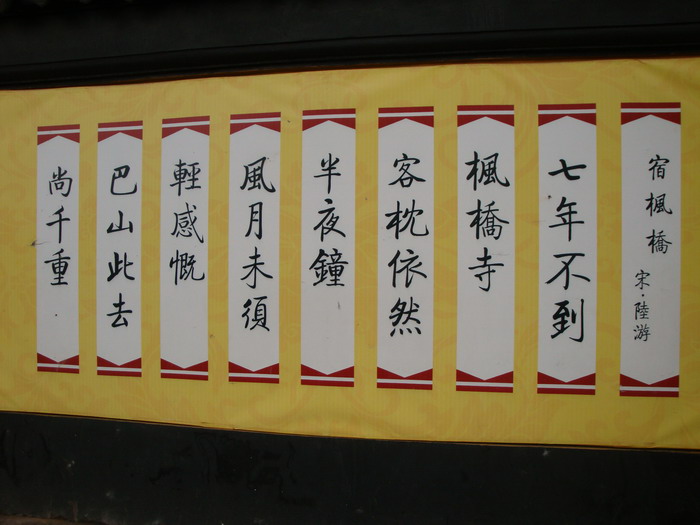 宿楓橋 宋·陸游
七年不到
楓橋寺
客枕依然
半夜鐘
風月未須
輕感慨
巴山此去
尚千重